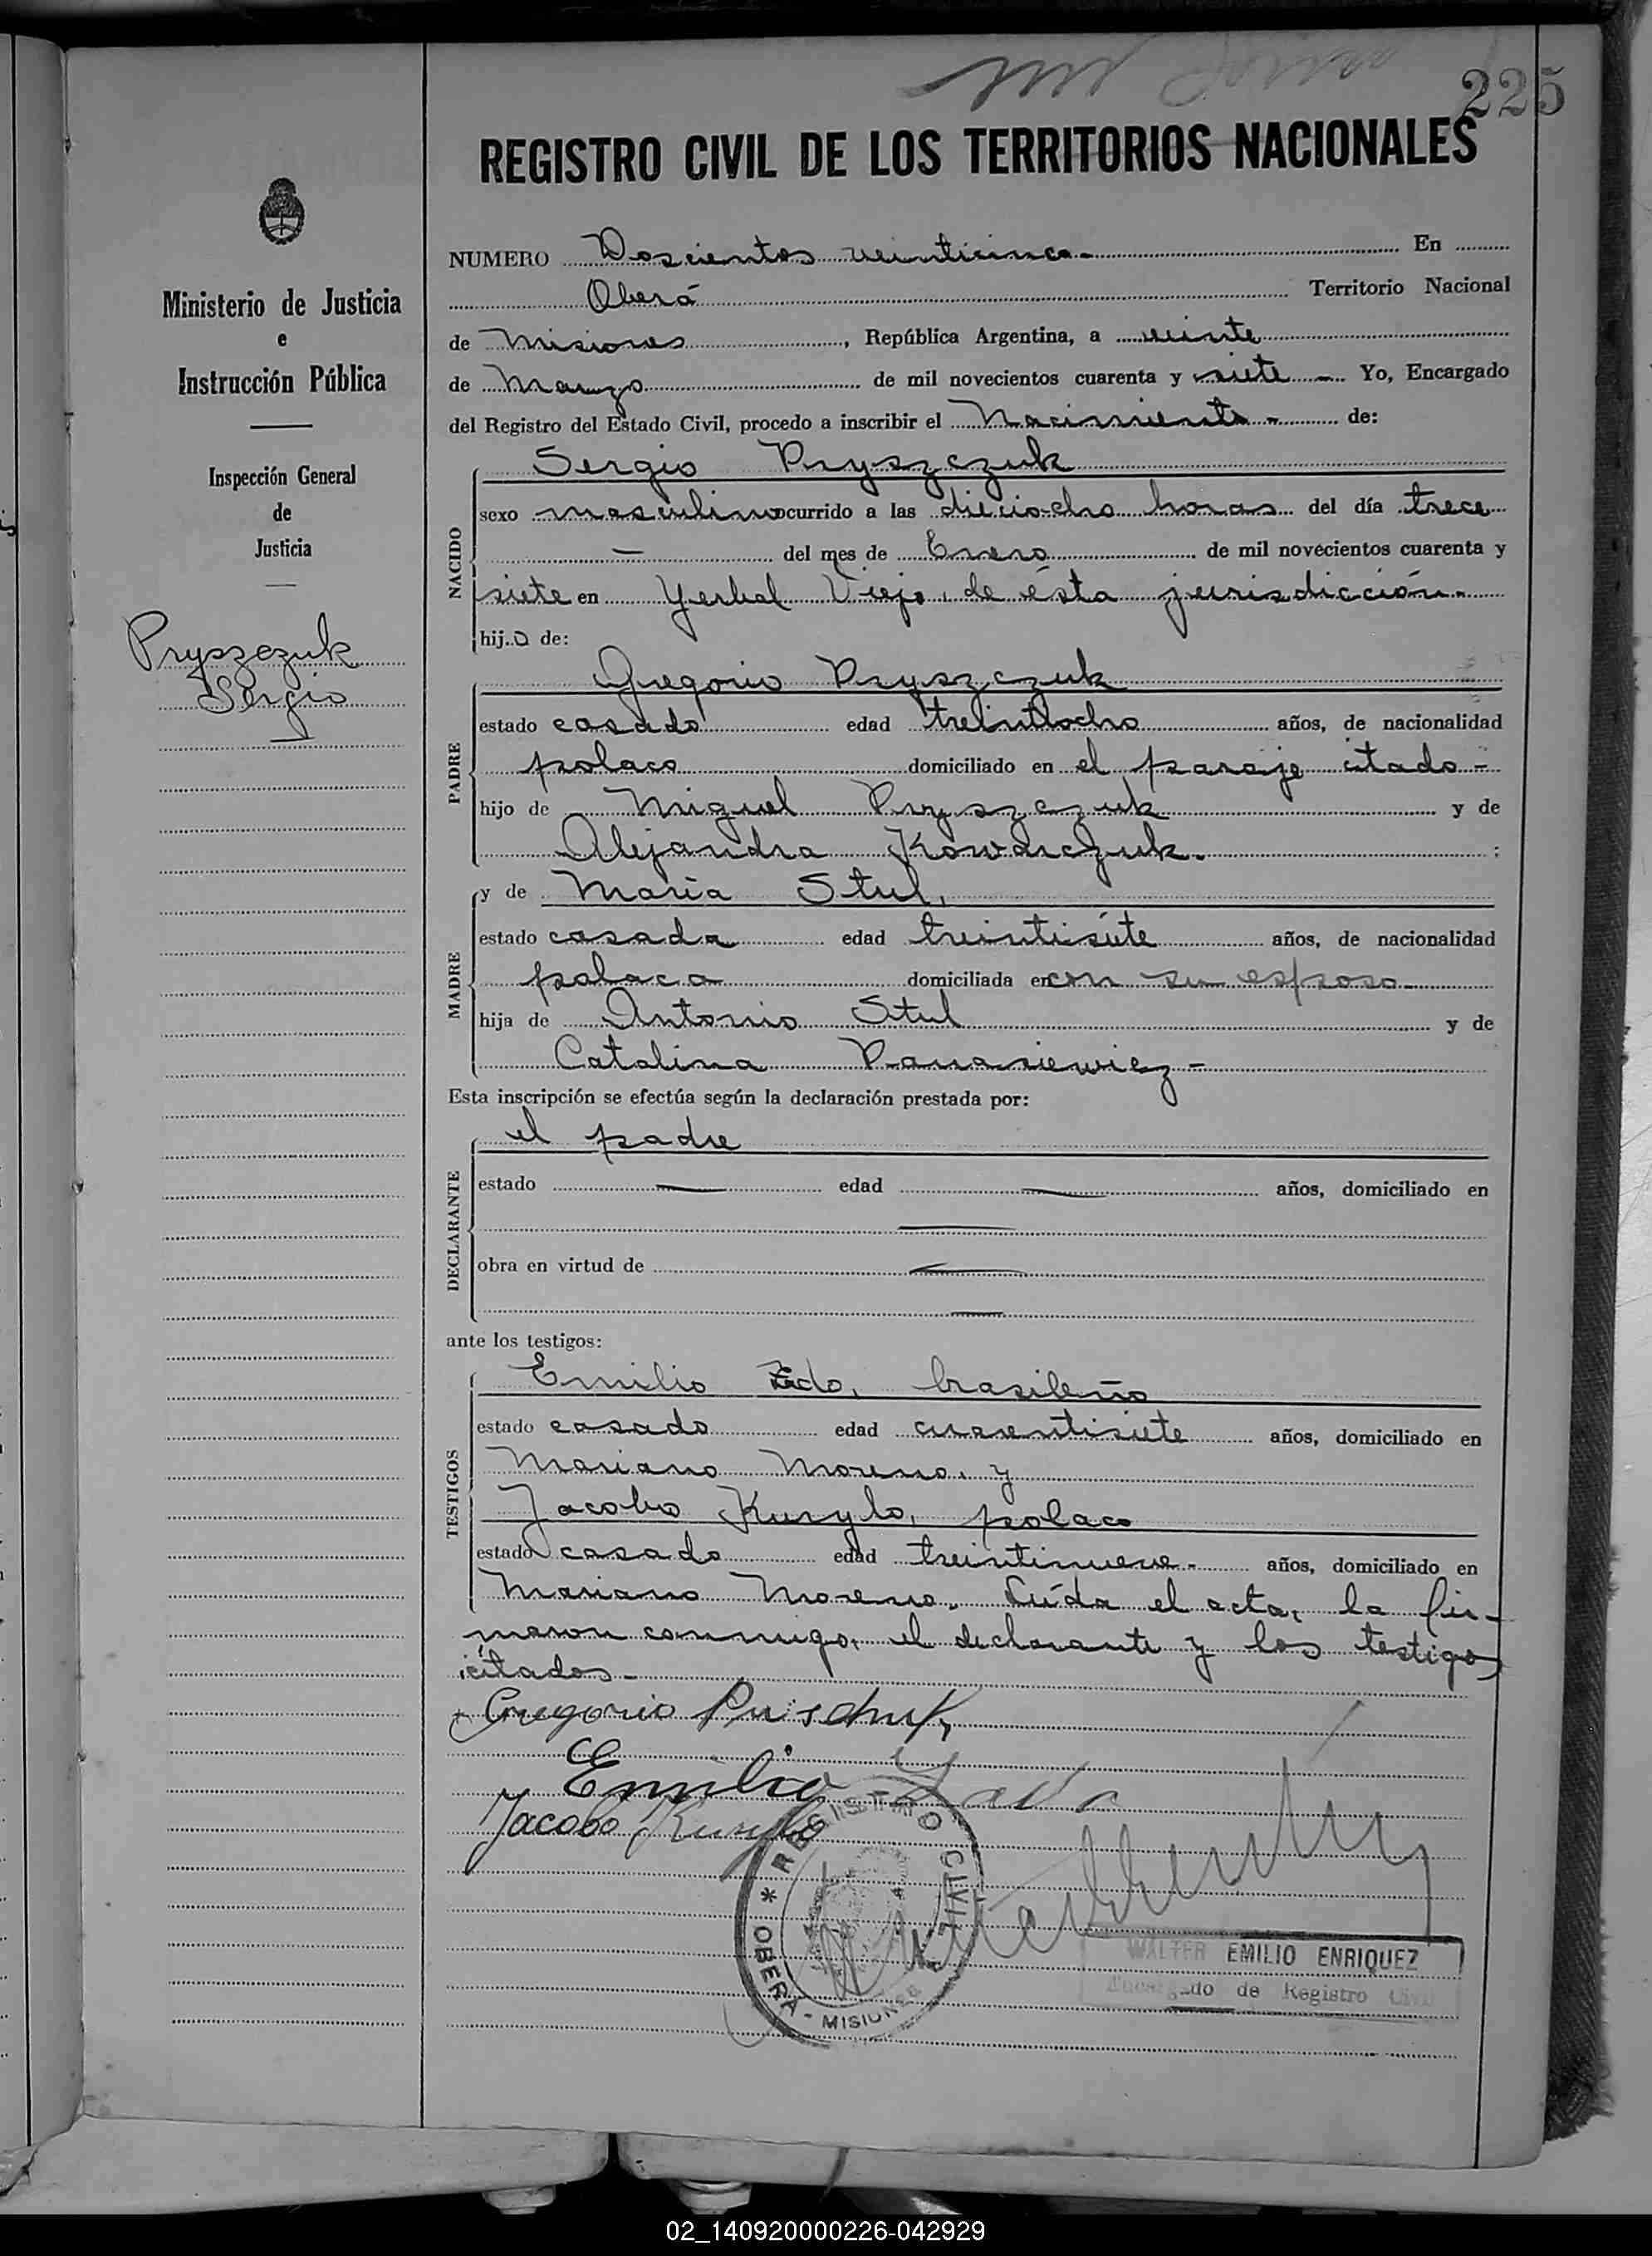 225
REGISTRO CIVIL DE LOS TERRITORIOS NACIONALES
Ministerio de Justicia
e
Instrucción Pública
Inspección General
de
Justicia
Pryszczuk
Sergio
NUMERO Doscientos veinticinco.- En
Oberá Territorio Nacional
de Misiones, República Argentina, a veinte
de Marzo de mil novecientos cuarenta y siete - Yo, Encargado
del Registro del Estado Civil, procedo a inscribir el Nacimiento - de:
NACIDO
Sergio Pryszczuk
sexo masculino ocurrido a las dieciocho horas del día trece
— del mes de Enero de mil novecientos cuarenta y
siete en Yerbal Viejo, de ésta jurisdicción.-
hijo de:
PADRE
Gregorio Pryszczuk
estado casado edad treintiocho años, de nacionalidad
polaco domiciliado en el paraje citado -
hijo de Miguel Pryszczuk y de
Alejandra Kowarczuk. ;
MADRE
y de Maria Stul,
estado casada edad treintisiete años, de nacionalidad
polaca domiciliada en con su esposo
hija de Antonio Stul y de
Catalina Panasiewicz -
Esta inscripción se efectúa según la declaración prestada por:
DECLARANTE
el padre
estado — edad — años, domiciliado en
—
obra en virtud de —
—
ante los testigos:
TESTIGOS
Emilio brasileño
estado casado edad cuarentisiete años, domiciliado en
Mariano Moreno, y
Jacobo Kurylo, polaco
estado casado edad treintinueve.- años, domiciliado en
Mariano Moreno. Leída el acta, la fir-
maron conmigo, el declarante y los testigos
citados -
Gregorio
Emilio
Jacobo Kurylo
REGISTRO CIVIL
* OBERÁ - MISIONES
WALTER EMILIO ENRIQUEZ
Encargado de Registro Civil
02_140920000226-042929